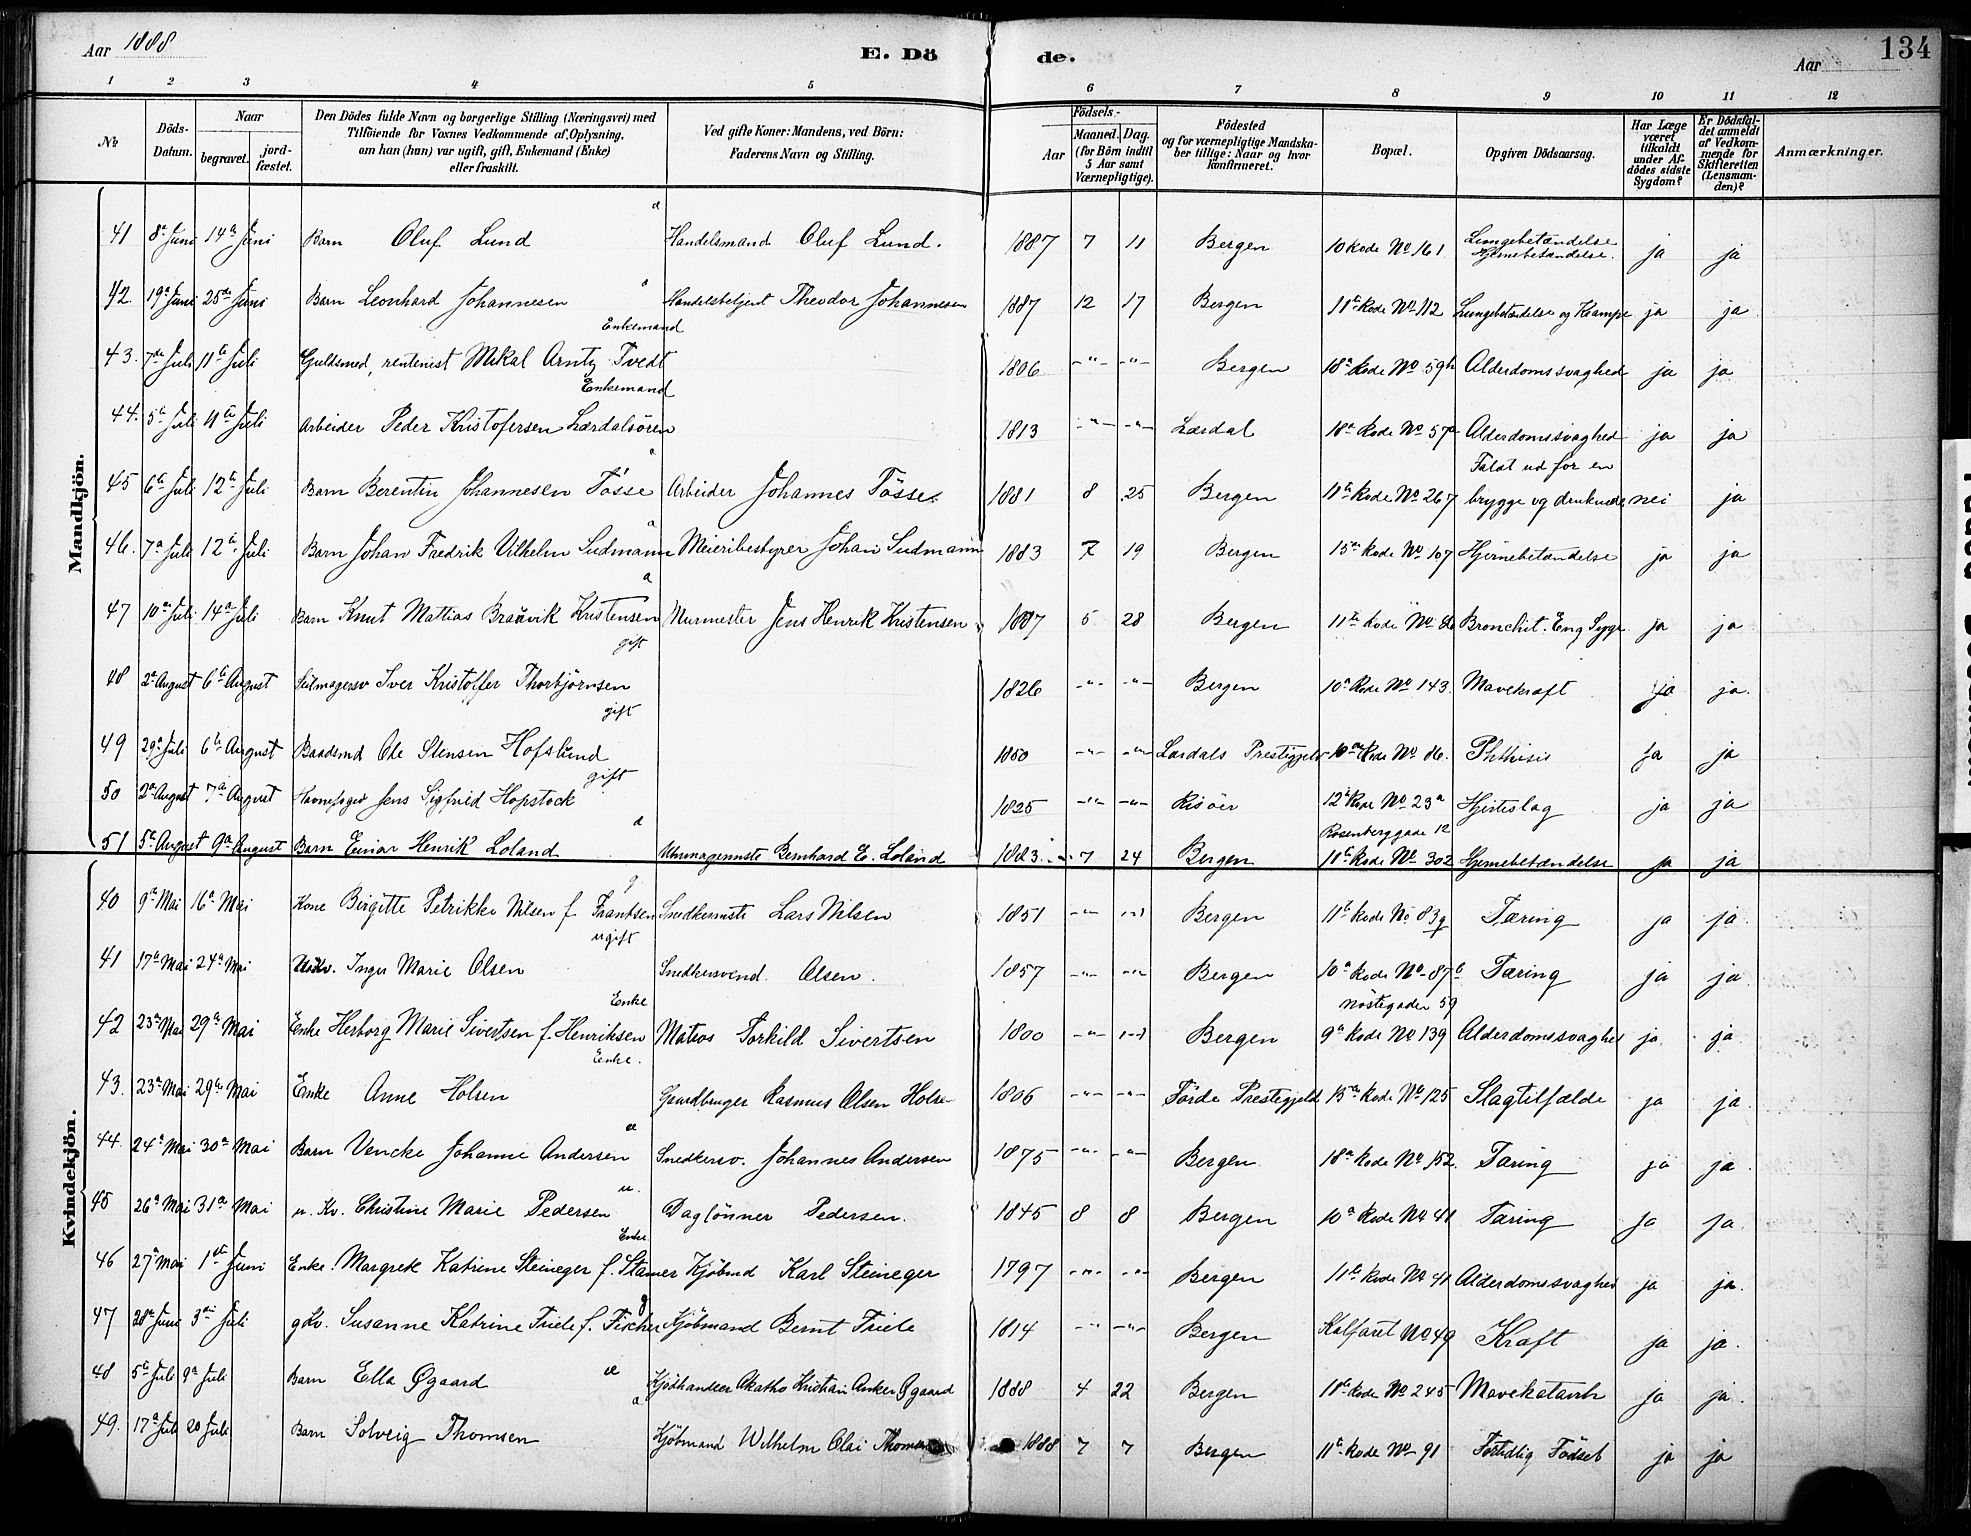 Aar 1888 E. Dö de. Aar 134
1 2 3 4 5 6 7 8 9 10 11 12
No Döds-Datum. Naar begravet. jord-fæstet. Den Dödes fulde Navn og borgerlige Stilling (Næringsvei) med Tilföiende for Voxnes Vedkommende af Oplysning, om han (hun) var ugift, gift, Enkemand (Enke) eller fraskilt. Ved gifte Koner: Mandens, ved Börn: Faderens Navn og Stilling. Födsels- Aar Maaned. Dag. (for Börn indtil 5 Aar samt Værnepligtige). Födested og for værnepligtige Mandskaber tillige: Naar og hvor konfirmeret. Bopæl. Opgiven Dödsaarsag. Har Læge været tilkaldt under Afdödes sidste Sygdom? Er Dödsfaldet anmeldt af Vedkommende for Skifteretten (Lensmanden)? Anmærkninger.
Mandkjön.
41 8de Juni 14de Juni Barn Oluf Lund Handelsmand Oluf Lund. 1887 7 11 Bergen 10 Rode No 161 Lungebetændelse Hjernebetændelse. ja ja
42. 19de Juni 25de Juni Barn Leonhard Johannesen Handelsbetjent Theodor Johannesen 1887 12 17 Bergen 11te Rode No 112 Lungebetændelse og Krampe ja ja
Enkemand
43. 7de Juli 11te Juli Guldsmed, rentenist Mikal Arntz Tvedt 1806 -"- -"- Bergen 18de Rode No 59b Alderdomssvaghed ja ja
Enkemand
44. 5te Juli 11te Juli Arbeider Peder Kristofersen Lærdalsören 1813 -"- -"- Lærdal 18de Rode No 57a Alderdomssvaghed ja ja
Faldt ud for en
45 6te Juli 12te Juli Barn Berentin Johannesen Tösse Arbeider Johannes Tösse. 1881 8 25 Bergen 11te Rode No 267 brygge og druknede nei ja
46. 7de Juli 12te Juli Barn Johan Fredrik Vilhelm Sudmann Meieribestyrer Johan Sudmann 1883 7 19 Bergen 15de Rode No 107 Hjernebetændelse ja ja
47 10de Juli 14de Juli Barn Knut Mattias Braavik Kristensen Murmester Jens Henrik Kristensen 1887 5 28 Bergen 11te Rode No 86 Bronchit. Eng. Syge ja ja
gift
48 2de August 6te August Seilmagersv Iver Kristoffer Thorbjörnsen 1826 -"- -"- Bergen 10de Rode No 143. Mavekræft ja ja.
gift
49 29de Juli 6te August Baadsmd Ole Stensen Hofslund 1850 -"- -"- Lærdals Prestegjeld 10de Rode No 86. Phthisis ja ja
gift
50 2de August 7de August Havnefoged Jens Sigfried Hopstock 1825 -"- -"- Risöer 12te Rode No 23a Hjerteslag ja ja
Rosenberggade 12
51 5te August 9de August Barn Einar Henrik Loland Uhrmagermste Bernhard E. Loland 1883 7 24 Bergen 11te Rode No 302 Hjernebetændelse ja ja
Kvindekjön.
g
40 9de Mai 16de Mai Kone Birgitte Petrikke Nilsen f. Frantsen Snedkermste Lars Nilsen 1851 -"- -"- Bergen 11te Rode No 83g Tæring ja ja.
ugift
41 17de Mai 24de Mai Inger Marie Olsen Snedkersvend. Olsen. 1857 -"- -"- Bergen 10de Rode No 87b Tæring ja ja
Enke Nöstegaden 59
42 23de Mai 29de Mai Enke Herborg Marie Sivertsen f. Henriksen Matros Torkild Sivertsen 1800 -"- -"- Bergen 9de Rode No 139 Alderdomssvaghed ja ja
Enke.
43. 23de Mai 29de Mai Enke Anne Holsen Gaardbruger Rasmus Olsen Holsen 1806 -"- -"- Förde Prestegjeld 15de Rode No 125 Slagtilfælde ja ja.
44. 24de Mai 30de Mai Barn Vencke Johanne Andersen Snedkersv. Johannes Andersen 1875 -"- -"- Bergen. 18de Rode No 152. Tæring ja ja.
u.
45 26de Mai 31de Mai u. Kv. Christine Marie Pedersen Daglönner Pedersen. 1845 8 8 Bergen 10de Rode No 41 Tæring ja ja.
Enke
46 27de Mai 1ste Juni Enke. Margrete Katrine Steineger f. Stamer Kjöbmd Karl Steineger 1797 -"- -"- Bergen 11te Rode No 41 Alderdomssvaghed ja ja.
g
47 28de Juni 3die Juli g Kv. Susanne Katrine Friele f. Fischer Kjöbmand Bernt Friele 1814 -"- -"- Bergen Kalfaret No 49 Kræft ja ja.
48 5te Juli 9de Juli Barn Ella Øgaard Kjödhandler Akatho Kristian Anker Øgaard 1888 4 22 Bergen 11te Rode No 245 Mavekatarrh ja ja.
49. 17de Juli 20 Juli Barn Solveig Thomsen Kjöbmand Wilhelm Olai Thomsen 1888 7 7 Bergen 11te Rode No 91 Fortidlig Födsel ja ja